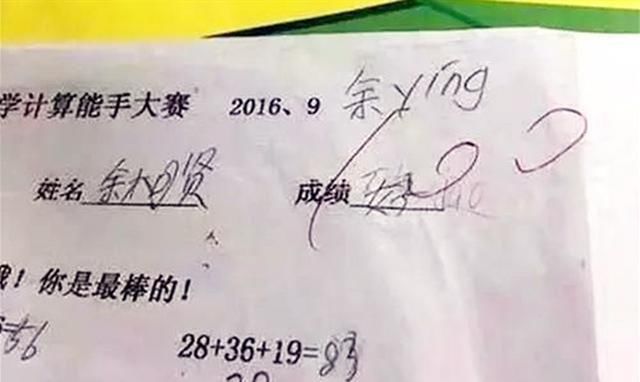 学计算能手大赛 2016、9 余ying
姓名 余 贤 成绩
！你是最棒的！
56 28+36+19=83